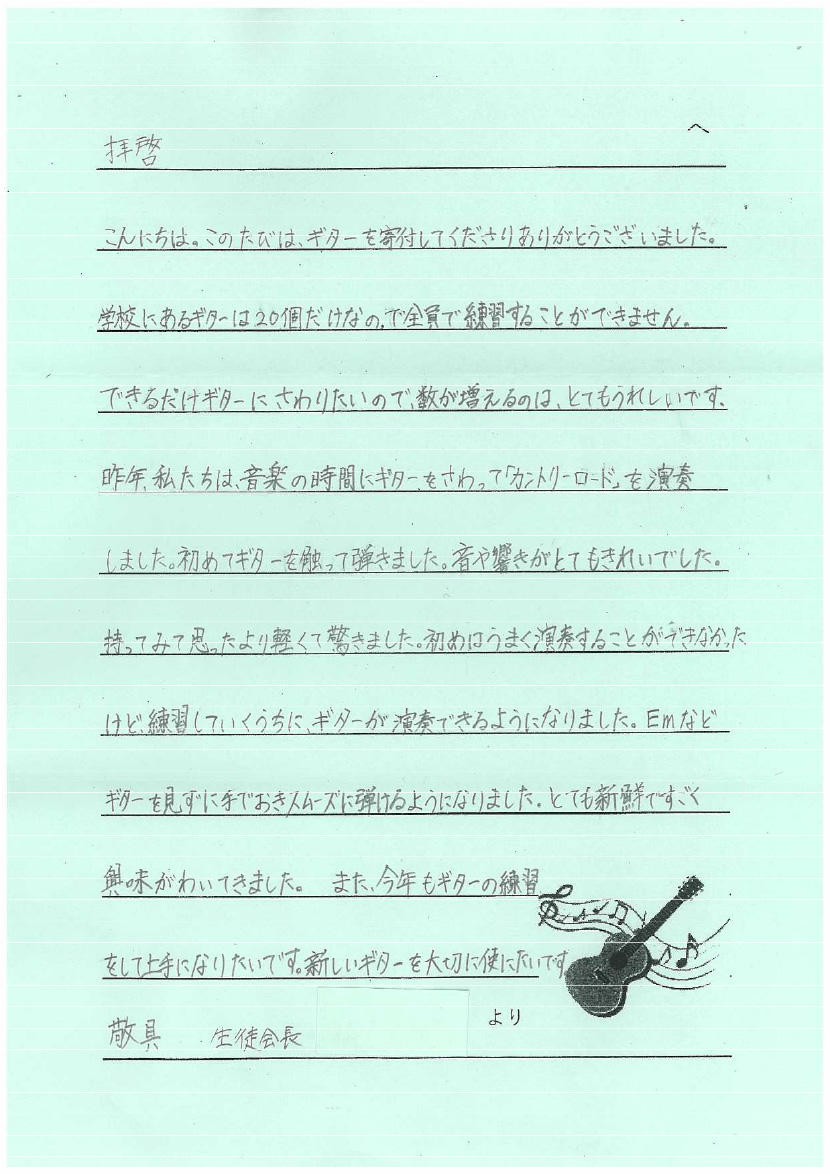 へ
拝啓
こんにちは。このたびは、ギターを寄付してくださりありがとうございました。
学校にあるギターは20個だけなので全員で練習することができません。
できるだけギターにさわりたいので、数が増えるのは、とてもうれしいです。
昨年、私たちは、音楽の時間にギターをさわって「カントリーロード」を演奏
しました。初めてギターを触って弾きました。音や響きがとてもきれいでした。
持ってみて思ったより軽くて驚きました。初めはうまく演奏することができなかった
けど、練習していくうちに、ギターが演奏できるようになりました。Emなど
ギターを見ずに手でおさスムーズに弾けるようになりました。とても新鮮ですごく
興味がわいてきました。 また、今年もギターの練習
をして上手になりたいです。新しいギターを大切に使いたいです
敬具 生徒会長 より